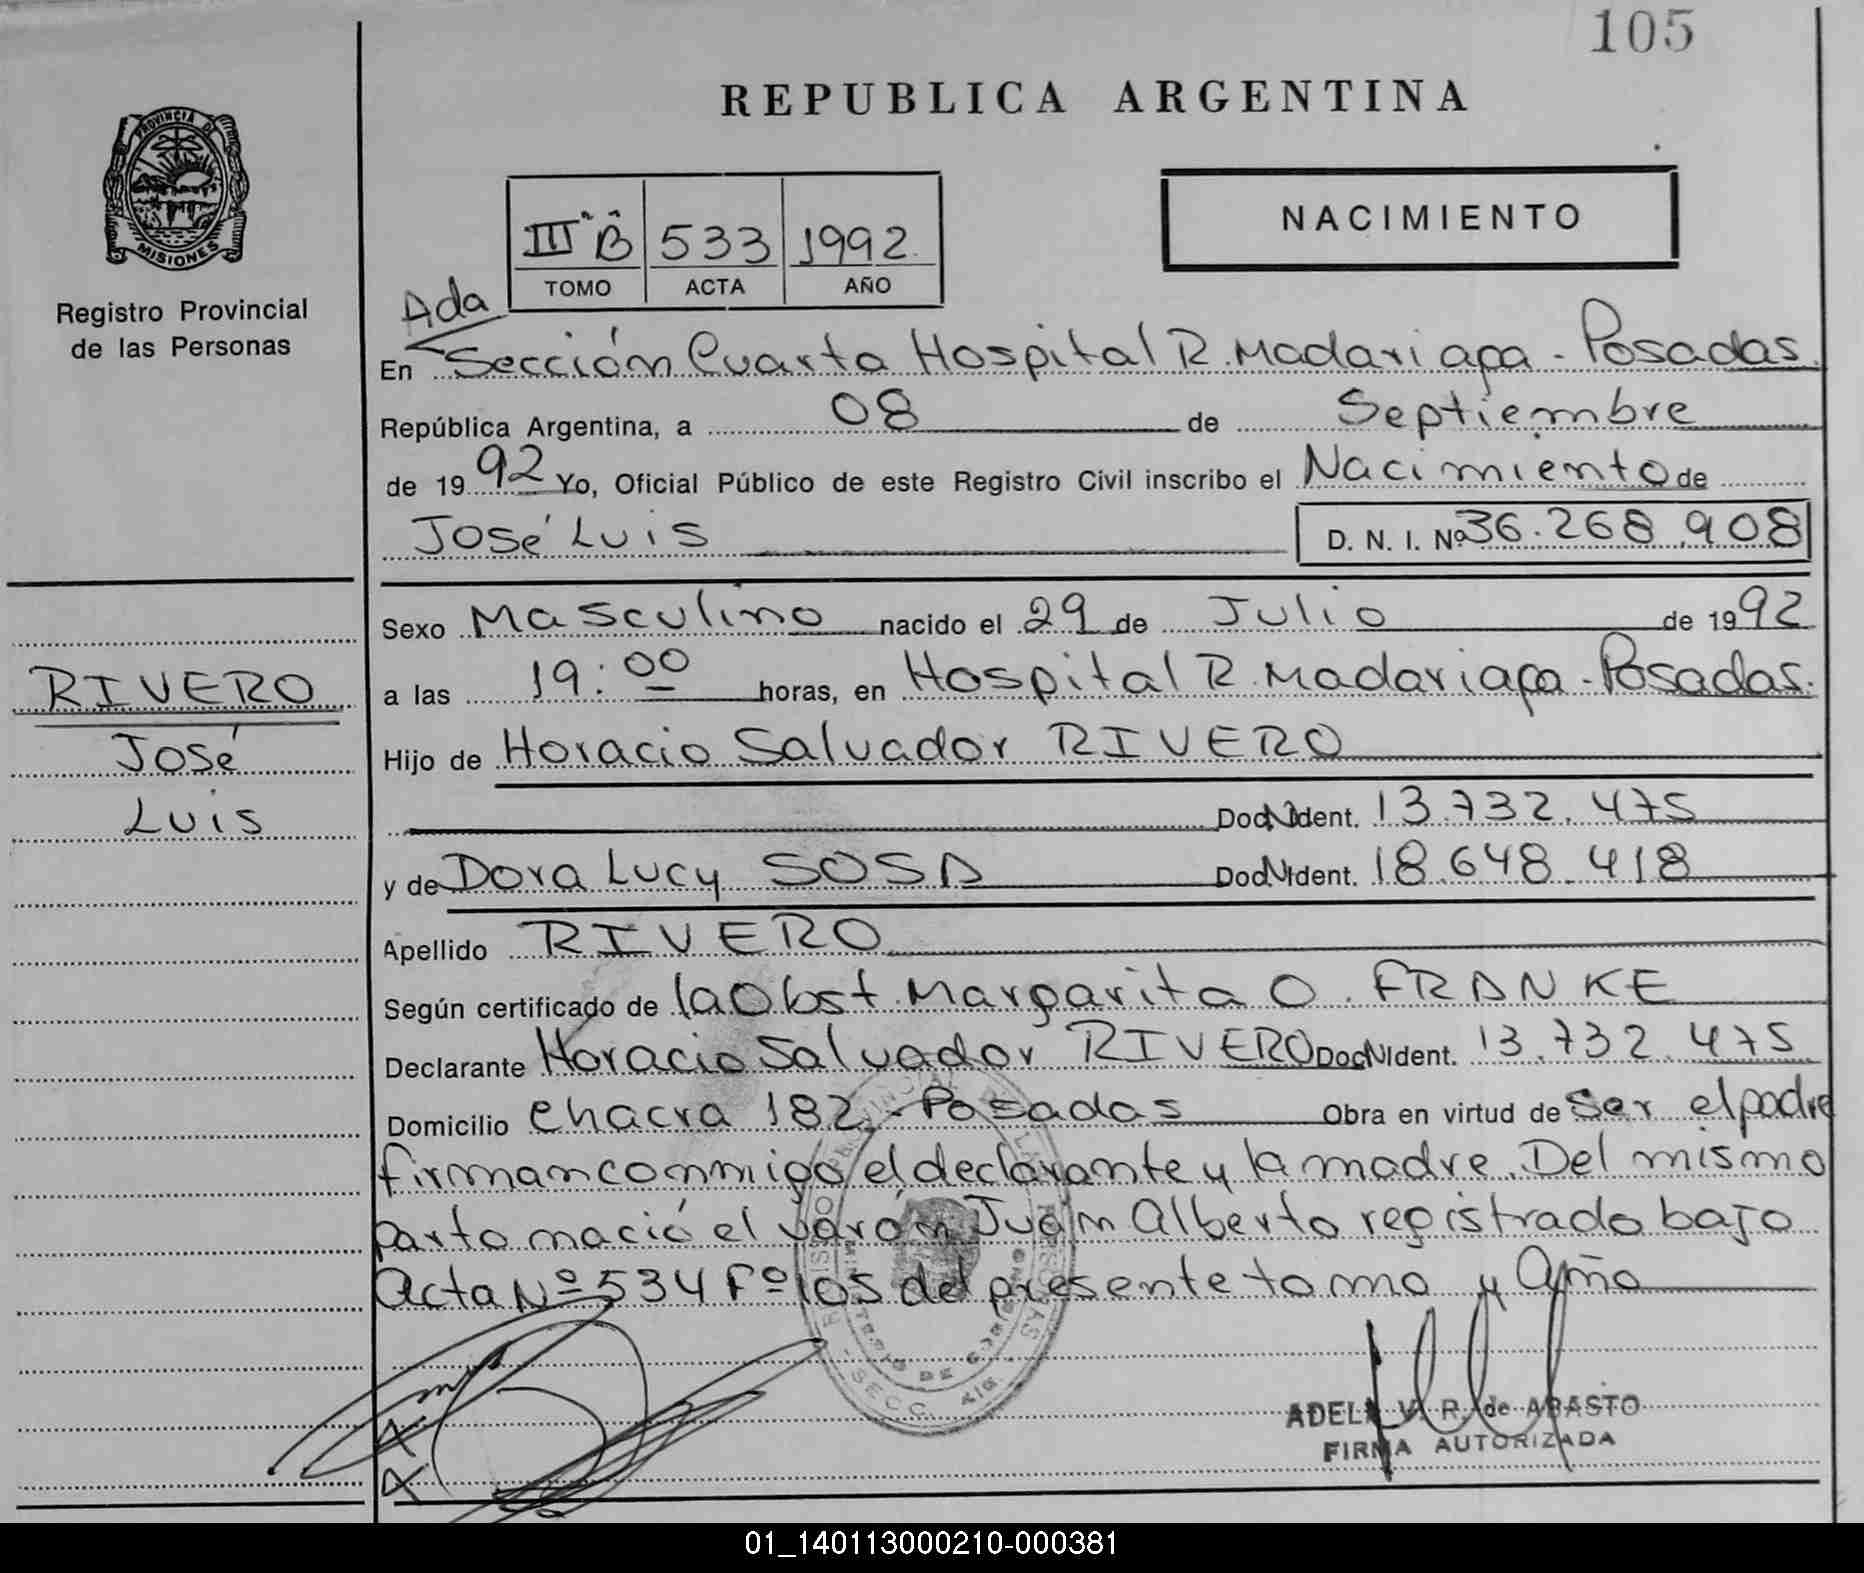 105
REPUBLICA ARGENTINA
PROVINCIA DE
MISIONES
Registro Provincial
de las Personas
NACIMIENTO
III B 533 1992
TOMO ACTA AÑO
Ada
En Sección Cuarta Hospital R. Madariaga - Posadas.
República Argentina, a 08 de Septiembre
de 1992 Yo, Oficial Público de este Registro Civil inscribo el Nacimiento de
José Luis D. N. I. Nº 36.268.908
Sexo Masculino nacido el 29 de Julio de 1992
a las 19:00 horas, en Hospital R. Madariaga - Posadas.
RIVERO
José
Luis
Hijo de Horacio Salvador RIVERO
Doc. Ident. 13.732.475
y de Dora Lucy SOSA Doc. Ident. 18.648.418
Apellido RIVERO
Según certificado de la Obst. Margarita O. FRANKE
Declarante Horacio Salvador RIVERO Doc. Ident. 13.732.475
Domicilio Chacra 182 - Posadas Obra en virtud de Ser el padre
firman conmigo el declarante y la madre. Del mismo
parto nació el varón Juan Alberto registrado bajo
Acta Nº 534 Fº 105 del presente tomo y Año
ADELA V. R. de ABASTO
FIRMA AUTORIZADA
01_140113000210-000381